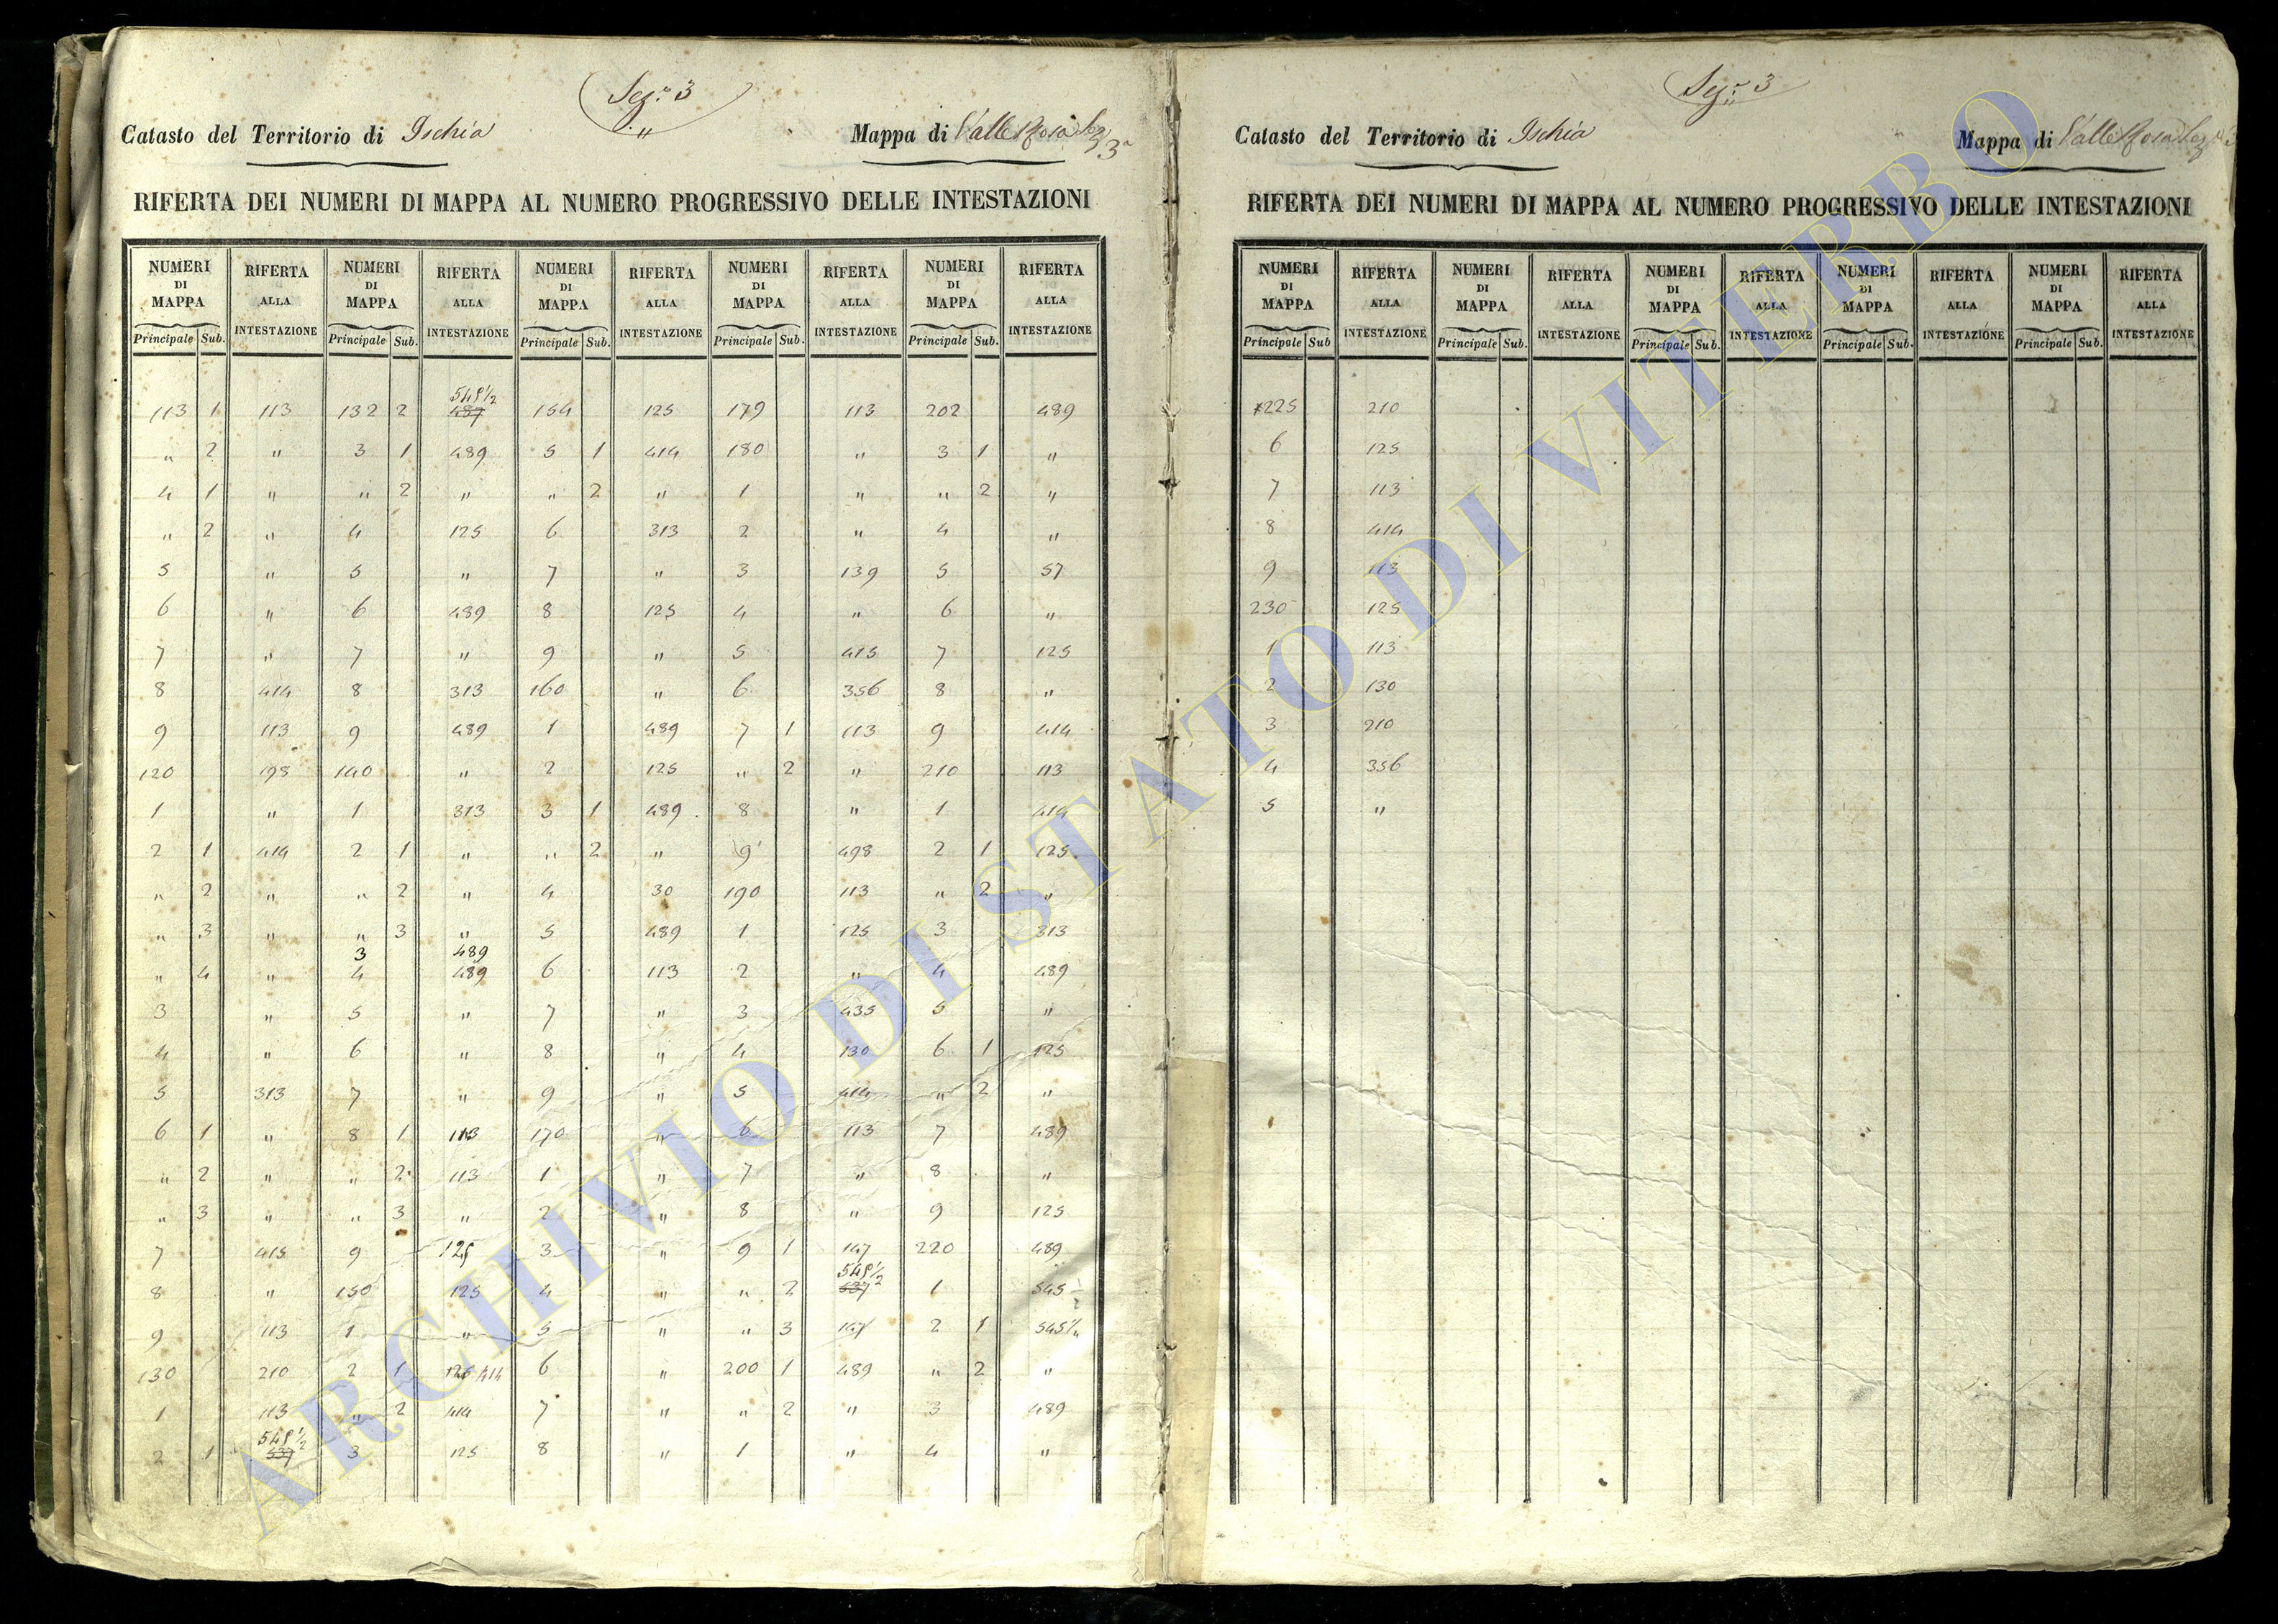 Sez.e 3
Catasto del Territorio di Ischia Mappa di Valle Rosa Sez 3a
RIFERTA DEI NUMERI DI MAPPA AL NUMERO PROGRESSIVO DELLE INTESTAZIONI
NUMERI DI MAPPA RIFERTA ALLA INTESTAZIONE NUMERI DI MAPPA RIFERTA ALLA INTESTAZIONE NUMERI DI MAPPA RIFERTA ALLA INTESTAZIONE NUMERI DI MAPPA RIFERTA ALLA INTESTAZIONE NUMERI DI MAPPA RIFERTA ALLA INTESTAZIONE
Principale Sub. Principale Sub. Principale Sub. Principale Sub. Principale Sub.
545 1/2
113 1 113 132 2 487 154 125 179 113 202 489
" 2 " 3 1 489 5 1 414 180 " 3 1 "
4 1 " " 2 " " 2 " 1 " " 2 "
" 2 " 4 125 6 313 2 " 4 "
5 " 5 " 7 " 3 139 5 57
6 " 6 489 8 125 4 " 6 "
7 " 7 " 9 " 5 415 7 125
8 414 8 313 160 " 6 356 8 "
9 113 9 489 1 489 7 1 113 9 414
120 198 140 " 2 125 " 2 " 210 113
1 " 1 313 3 1 489 8 " 1 414
2 1 414 2 1 " " 2 " 9 498 2 1 125
" 2 " " 2 " 4 30 190 113 " 2 "
" 3 " " 3 " 5 489 1 125 3 313
3 489
" 4 " 4 489 6 113 2 " 4 489
3 " 5 " 7 " 3 435 5 "
4 " 6 " 8 " 4 130 6 1 125
5 313 7 " 9 " 5 414 " 2 "
6 1 " 8 1 113 170 " 6 113 7 489
" 2 " " 2 113 1 " 7 " 8 "
" 3 " " 3 " 2 " 8 " 9 125
7 415 9 125 3 " 9 1 147 220 489
545 1/2
8 " 150 125 4 " " 2 537 1 545 1/2
9 113 1 " 5 " " 3 147 2 1 545 1/2
130 210 2 1 125 414 6 " 200 1 489 " 2 "
1 113 " 2 414 7 " " 2 " 3 489
545 1/2
2 1 537 3 125 8 " 1 " 4 "
Sez.e 3
Catasto del Territorio di Ischia Mappa di Valle Rosa Sez a 3
RIFERTA DEI NUMERI DI MAPPA AL NUMERO PROGRESSIVO DELLE INTESTAZIONI
NUMERI DI MAPPA RIFERTA ALLA INTESTAZIONE NUMERI DI MAPPA RIFERTA ALLA INTESTAZIONE NUMERI DI MAPPA RIFERTA ALLA INTESTAZIONE NUMERI DI MAPPA RIFERTA ALLA INTESTAZIONE NUMERI DI MAPPA RIFERTA ALLA INTESTAZIONE
Principale Sub Principale Sub. Principale Sub. Principale Sub. Principale Sub.
225 210
6 125
7 113
8 414
9 113
230 125
1 113
2 130
3 210
4 356
5 "
ARCHIVIO DI STATO DI VITERBO